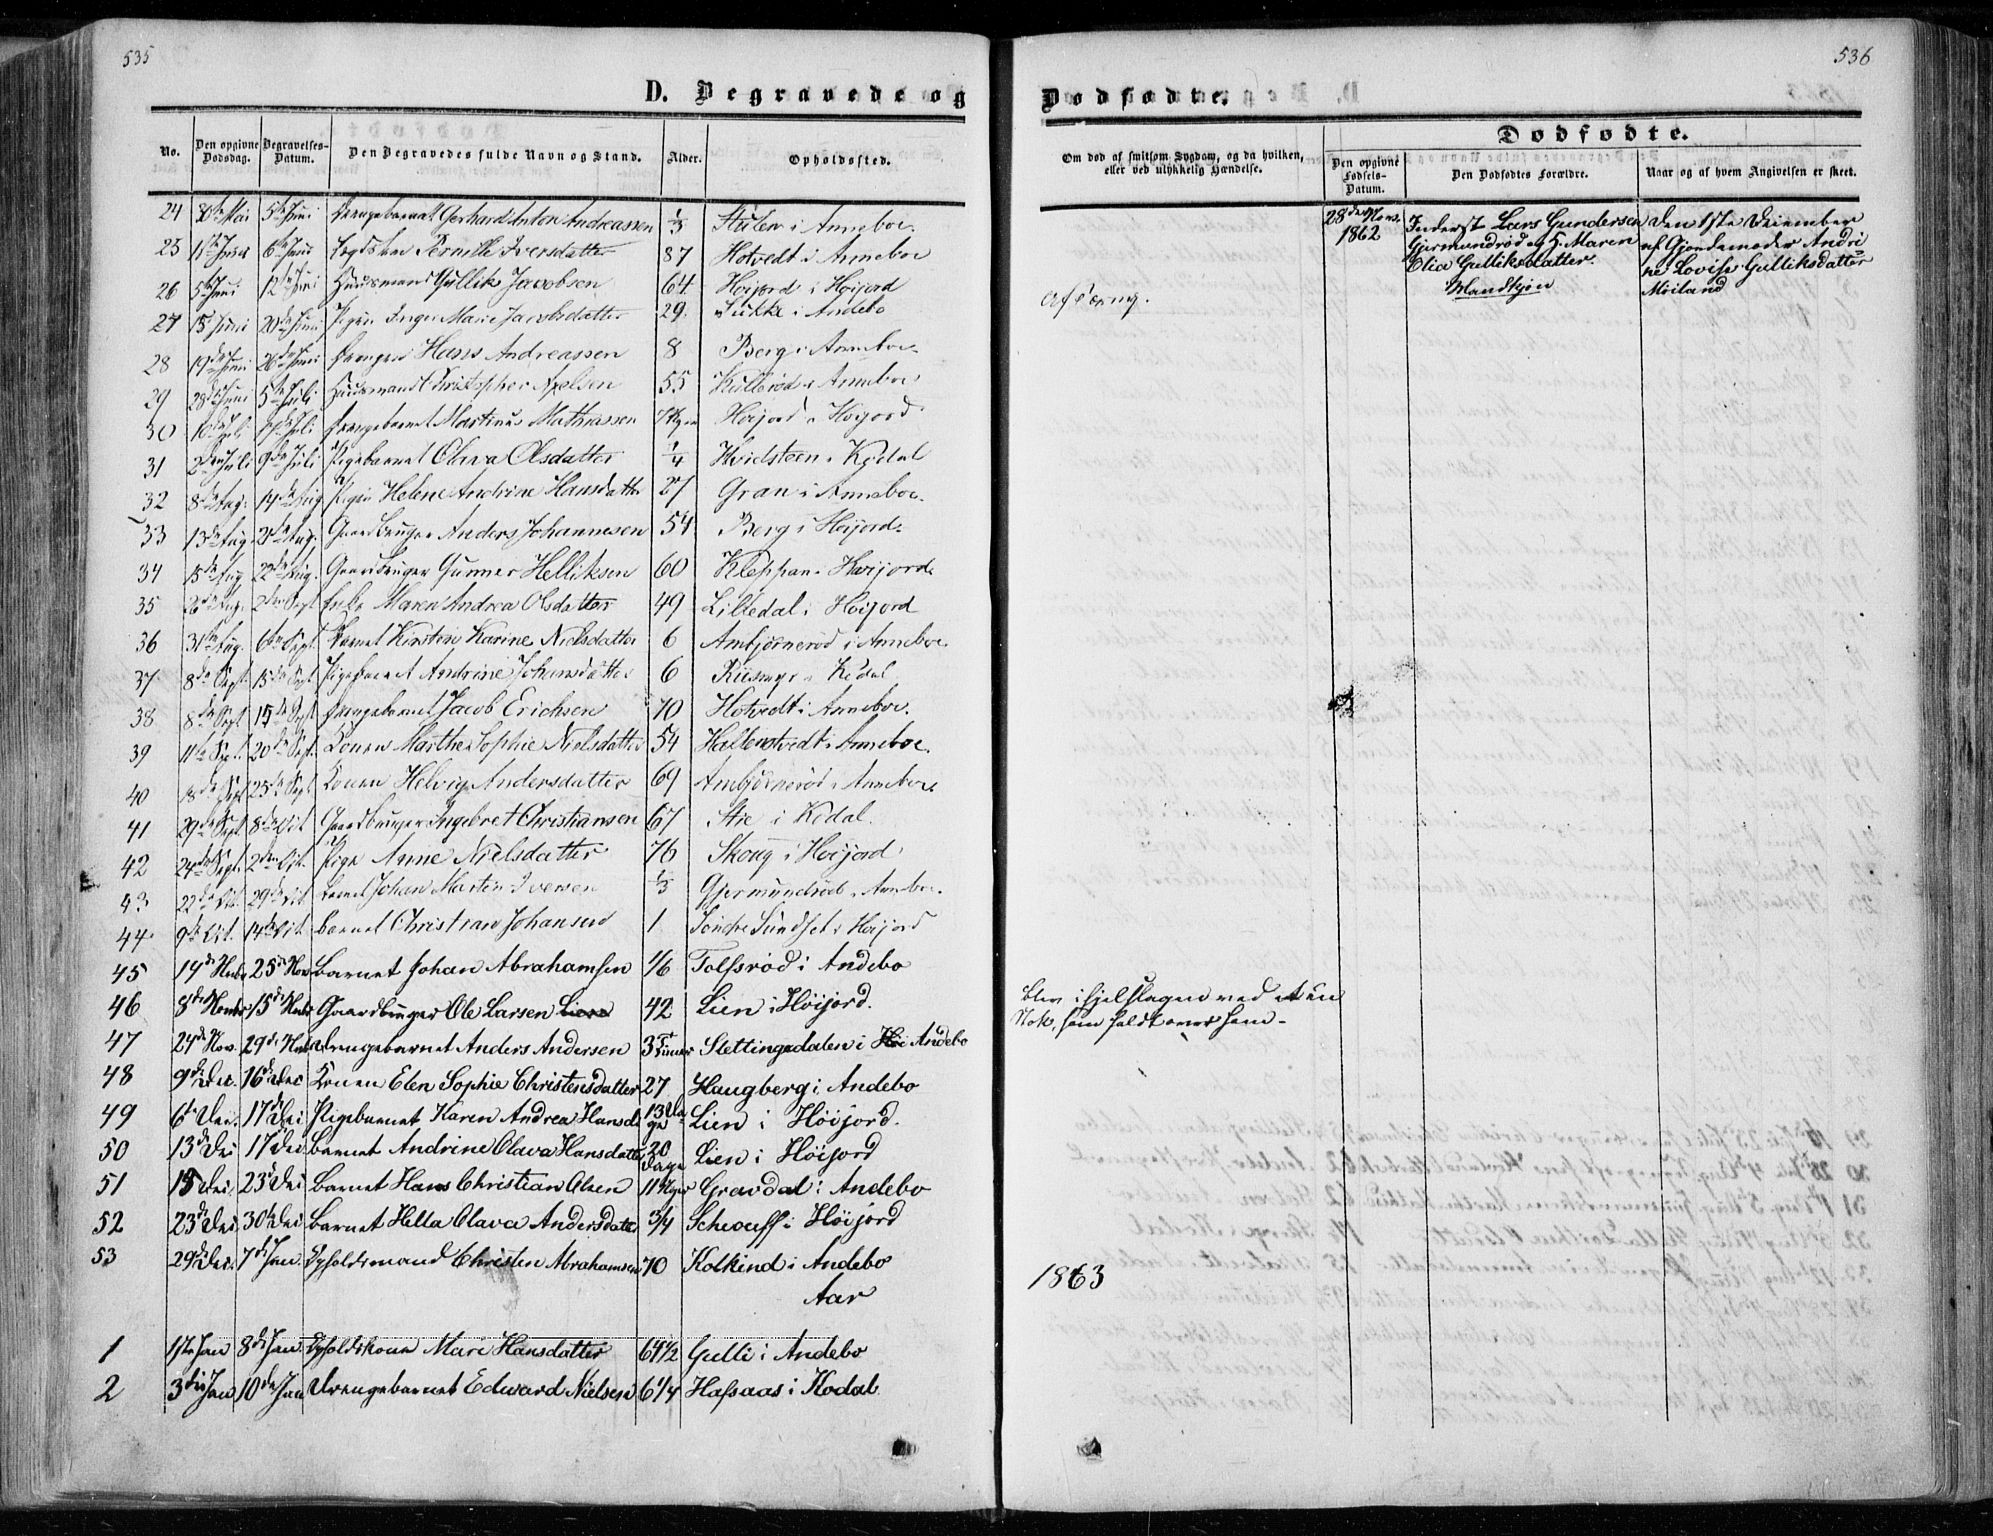 535
D. Begravede og
No. Den opgivne Dødsdag. Begravelses-Datum. Den Begravedes fulde Navn og Stand. Alder. Opholdssted.
24 30te Mai 5te Juni Drengebarnet Gerhard Anton Andreassen 1/3 i Anneboe.
25 6te Juni Pernille Iversdatter 87 Hotvedt i Anneboe
26 5te Juni 12te Juni Huusmand Gullik Jacobsen 64 Høijord i Høijord
27 15 Juni 20de Juni Pigen Inger Marie Jacobsdatter 29. i Andebo
28 19de Juni 26de Juni Drengen Hans Andreassen 8 Berg i Anneboe.
29 28de Juni 5te Juli Huusmand Christopher 55 i Anneboe
30 Drengebarnet Martinus Mathiassen 7 Uger Høijord i Høijord
31 2den Juli 9de Juli Pigebarnet Olava Olsdatter 1/4 Hvidsteen i Kodal
32 8de Aug. 14de Aug Pigen Helene Andrine Hansdatter 27 Gran i Anneboe.
33 13de Aug. Gaardbruger Anders Johannesen 54 Berg i Høijord.
34 15de Aug 22de Aug. Gaardbruger Gunner Helliksen 60 Kleppan i Høijord.
35 26de Aug. 2den Sept Enke Maren Andrea Olsdatter 49 Lilledal i Høijord
36 31te Aug. 6te Sept. Barnet Kirstine Karine Nielsdatter 6 Ambjørnerød i Anneboe
37 8de Sept 15de Sept Pigebarnet Andrine Johansdatter 6 i Kodal
38 8de Sept 15de Sept Drengebarnet Jacob Erichsen 70 Hotvedt i Anneboe.
39 11te Sept. 20de Sept. Konen Marthe Sophie Nielsdatter 54 Hallenstvedt i Anneboe.
40 18de Sept 25de Sept Konen Helvig Andersdatter 69 Ambjørnerød i Anneboe
41 29de Sept. 8de Oct Gaardbruger Ingebret Christiansen 67 i Kodal.
42 24de Sept. 2den Oct. Pige Anne Nielsdatter 76 Skoug i Høijord
43 22de Oct. 29de Oct Barnet Johan Martin Iversen 1/3 Gjermundrød i Anneboe.
44 9de Oct. 14de Oct. barnet Christian Johansen 1 Søndre Sundset i Høijord
45 14de Novbr 25de Nov Barnet Johan Abrahamsen 1/6 Tolfsrød i Andebo
46 8de Novbr 15de Novbr Gaardbruger Ole Larsen Lien 42 Lien i Høijord.
47 24de Nov. 29de Novbr Drengebarnet Anders Andersen 3 Timer Slettingsdalen i Høi Andebo
48 9de Dec. 16de Dec Konen Elen Sophie Christensdatter 27 Haugberg i Andebo
49 6te Dec. 17de Dec Pigebarnet Karen Andrea Hansd. 13 Dage Lien i Høijord.
50 13de Dec 17 Dec Barnet Andrine Olava Hansdatter 20 Dage Lien i Høijord
51 15 Dec. 23de Dec Barnet Hans Christian Olsen 11 Uger Gravdal i Andebo
52 23de Dec 30te Dec Barnet Hella Olava Andersdatter 3/4 i Høijord
53 29de Dec. 7de Jan. Opholdsmand Christen Abrahamsen 70 Kolkind i Andebo
Aar
1 1ste Jan 8de Jan Opholdskone Mari Hansdatter 64 1/2 Gulli i Andebo
2 3die Jan 10de Jan Drengebarnet Edward Nielsen 6 1/4 Hafsaas i Kodal
536
Dødfødte.
Om død af smitsom Sygdom, og da hvilken,
eller ved ulykkelig Hændelse.
Dødfødte.
Den opgivne Fødsels-Datum. Den Dødfødtes Forældre. Naar og af hvem Angivelsen er skeet.
28de Nov. 1862
Inderst Lars Gundersen
Gjermundrød og H. Maren
Elia Gulliksdatter.
Mandkjøn
Den 1ste December
af Gjordemoder Andri
ne Lovise Gulliksdatter
Møiland
Af Tæring.
blev ihjelslagen ved at en
Stok, som faldt over ham.
1863